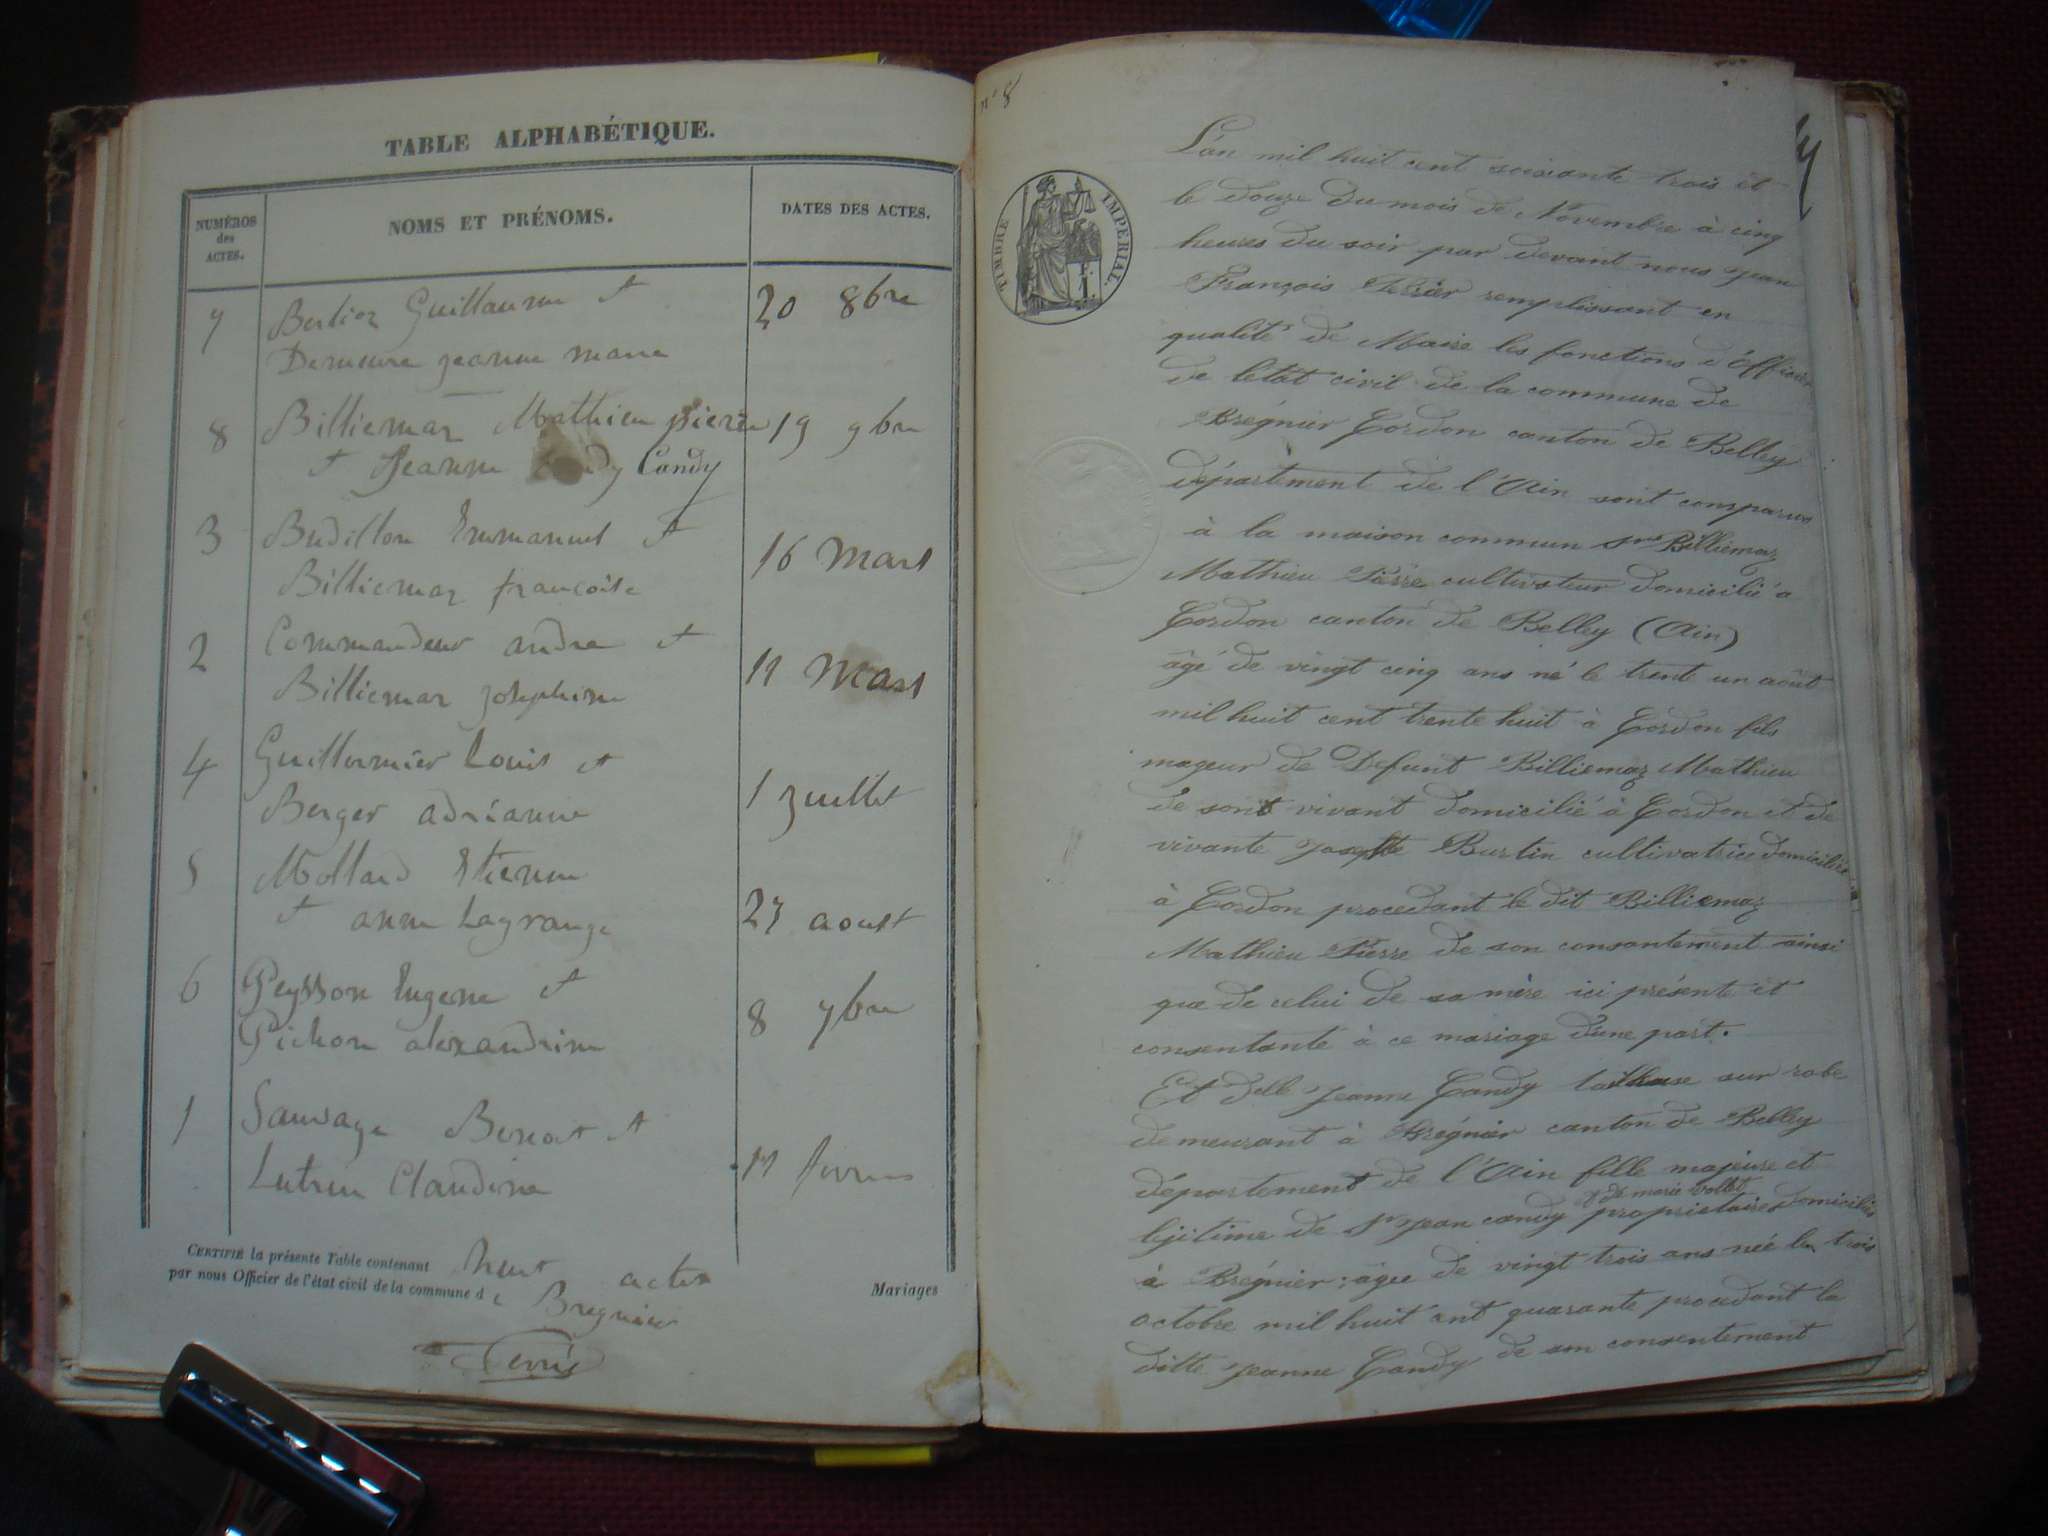 TABLE ALPHABÉTIQUE.
NUMÉROS
des
ACTES.
NOMS ET PRÉNOMS.
DATES DES ACTES.
7 Berlioz Guillaume et 20 8bre
Demeure jeanne marie
8 Billiemaz Mathieu pierre 19 9bre
et Jeanne Candy
3 Budillon Emmanuel et 16 Mars
Billiemaz françoise
2 Commandeur andre et 11 Mars
Billiemaz josephine
4 Guillermier Louis et 1 juillet
Berger adrianne
5 Mollard Etienne
et anne Lagrange 23 aoust
6 Peysson Eugene et 8 7bre
Pichon alexandrine
1 Sauvage Benoit et
Lutrin Claudine 11 fevrier
CERTIFIÉ la présente Table contenant huit actes
par nous Officier de l'état civil de la commune de Bregnier
Mariages
n° 8
TIMBRE IMPÉRIAL.
F.
1.
L'an mil huit cent soixante trois et
le douze du mois de Novembre à cinq
heures du soir par devant nous jean
François remplissant en
qualité de Maire les fonctions d'Officier
de l'état civil de la commune de
Brégnier Cordon canton de Belley
département de l'Ain sont comparus
à la maison commun Billiemaz
Mathieu Pierre cultivateur domicilié a
Cordon canton de Belley (Ain)
âgé de vingt cinq ans né le trent un août
mil huit cent trente huit à Cordon fils
mageur de Defunt Billiemaz Mathieu
de sont vivant domicilié à Cordon et de
vivante josephte Burtin cultivatrice domiciliée
à Cordon procedant le dit Billiemaz
Mathieu Pierre de son consantement ainsi
que de celui de sa mère ici présente et
consentante à ce mariage d'une part.
Et delle jeanne Candy tailleuse sur robe
demeurant à Brégnier canton de Belley
département de l'Ain fille majeure et
& de marie vollet
lejitime de Sr jean candy propriétaires domiciliés
à Brégnier; âgée de vingt trois ans née le trois
octobre mil huit cent quarante procedant la
ditte jeanne Candy de son consentement